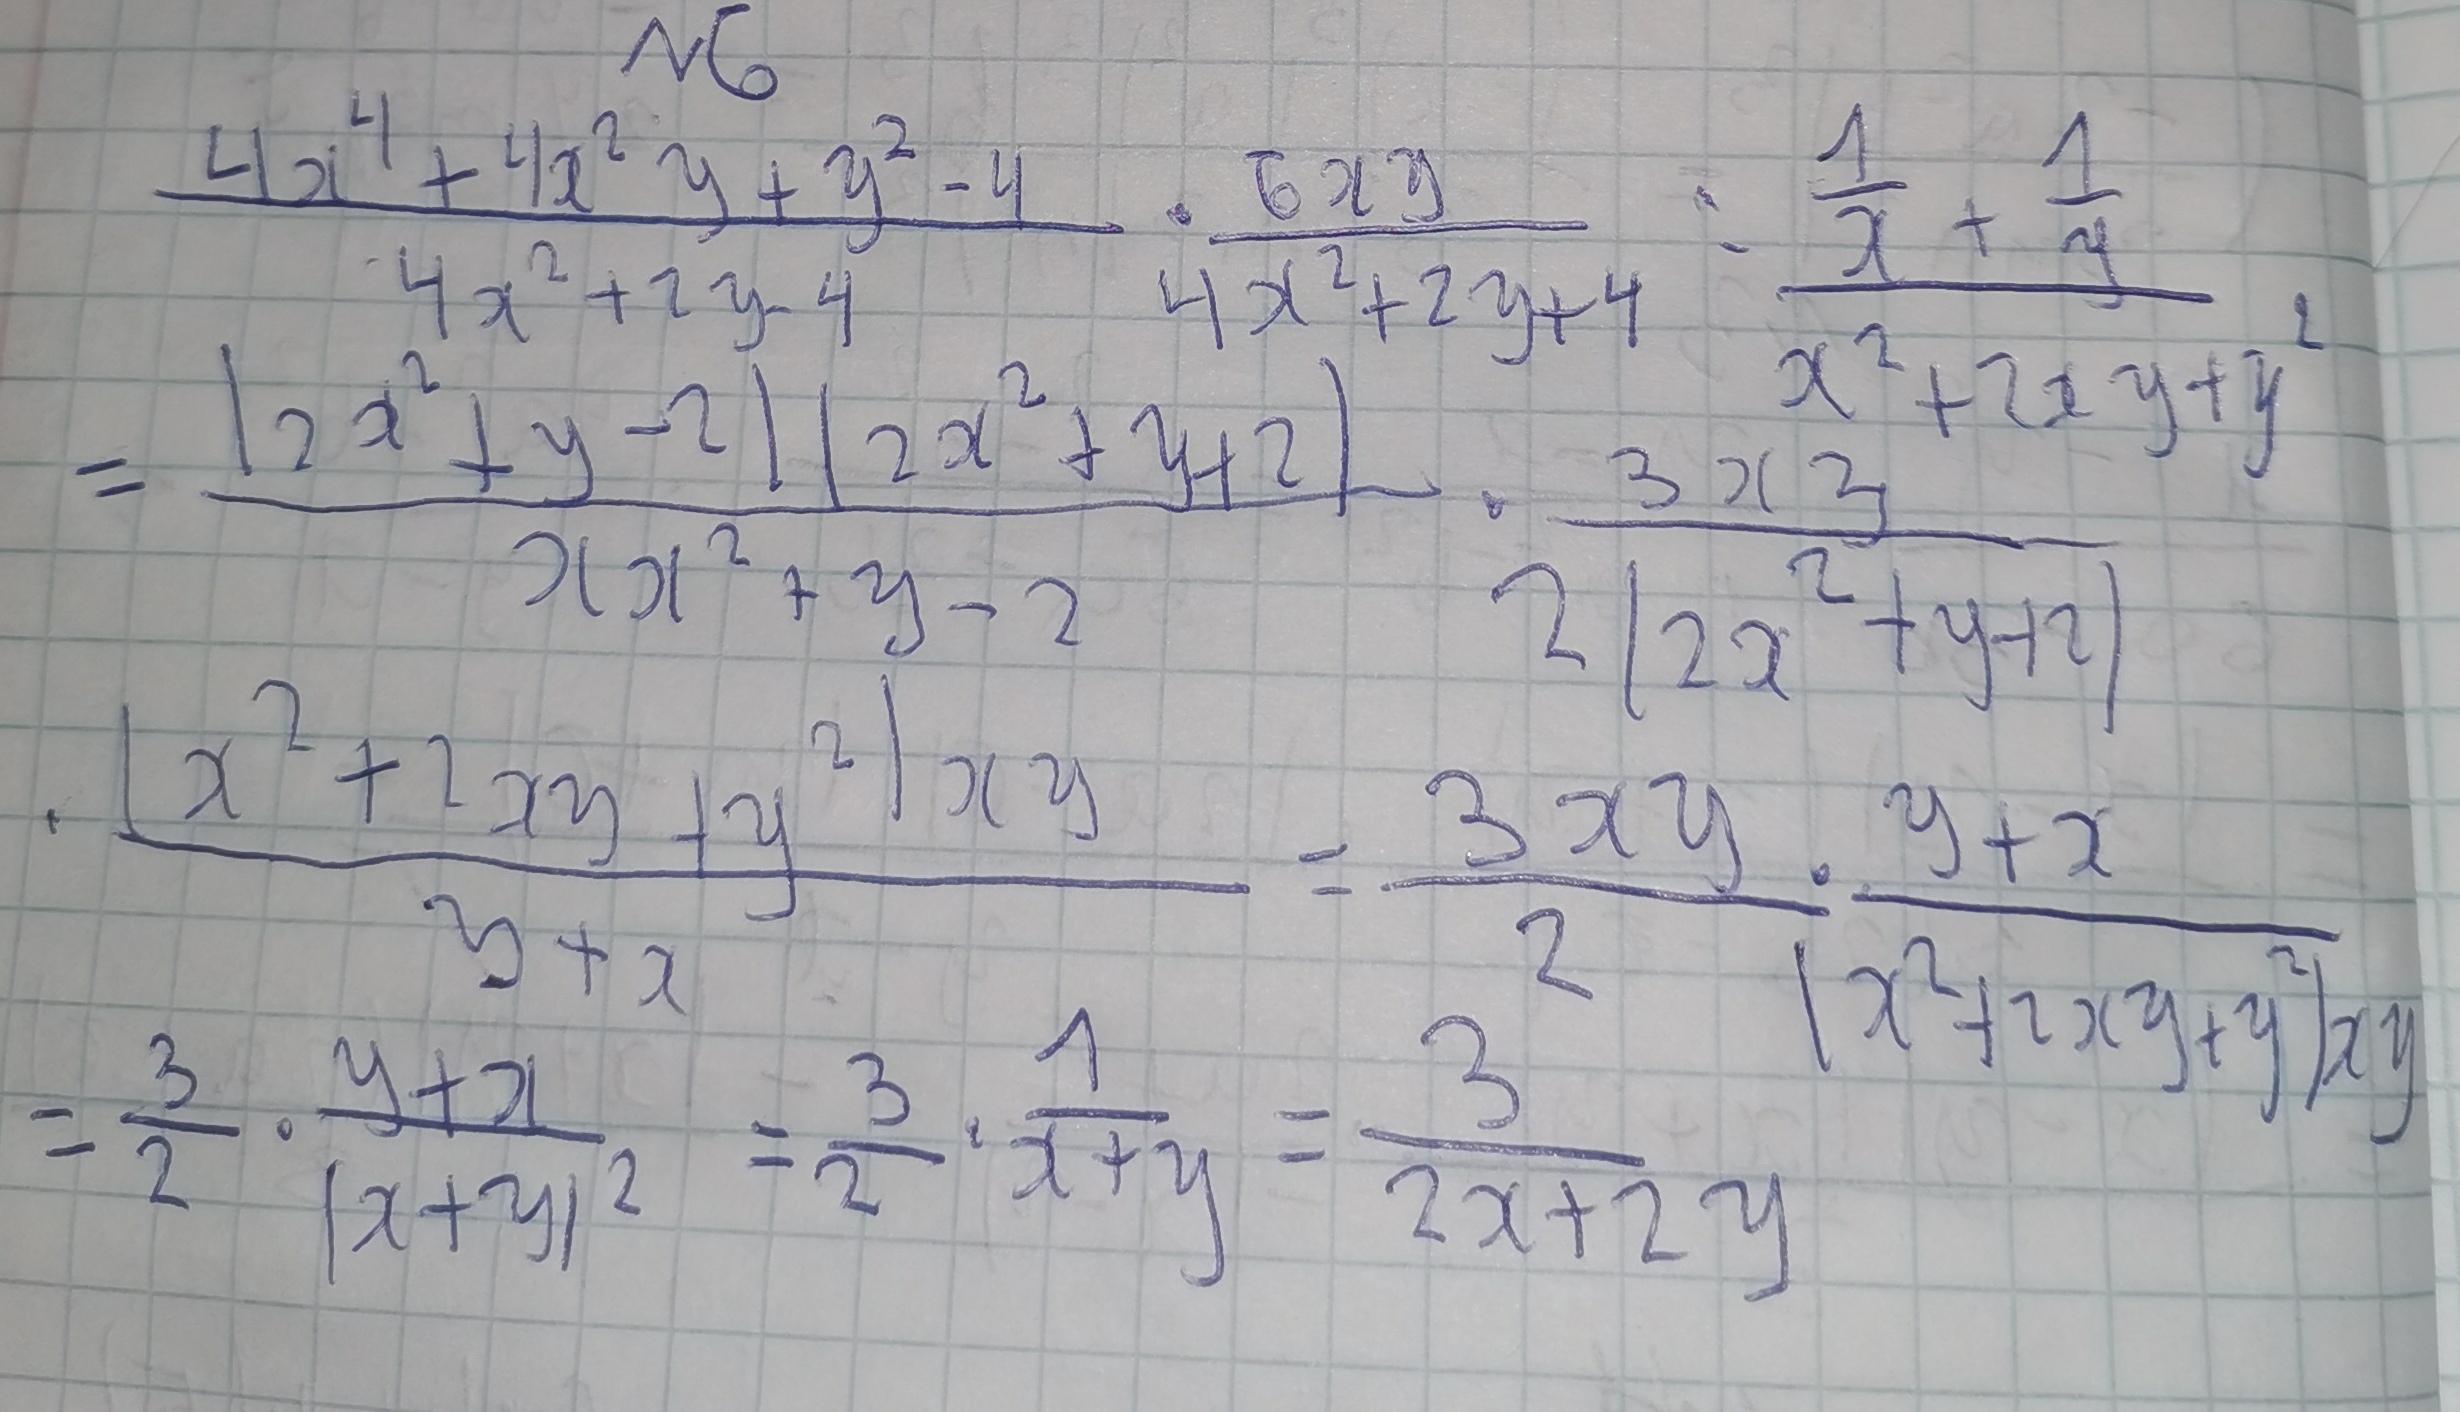 №6
\frac{4x^4+4x^2y+y^2-4}{4x^2+2y-4} \cdot \frac{6xy}{4x^2+2y+4} : \frac{\frac{1}{x}+\frac{1}{y}}{x^2+2xy+y^2}
= \frac{(2x^2+y-2)(2x^2+y+2)}{xx^2+y-2} \cdot \frac{3xy}{2(2x^2+y+2)}
\cdot \frac{(x^2+2xy+y^2)xy}{y+x} = \frac{3xy}{2} \cdot \frac{y+x}{(x^2+2xy+y^2)xy}
= \frac{3}{2} \cdot \frac{y+x}{(x+y)^2} = \frac{3}{2} \cdot \frac{1}{x+y} = \frac{3}{2x+2y}